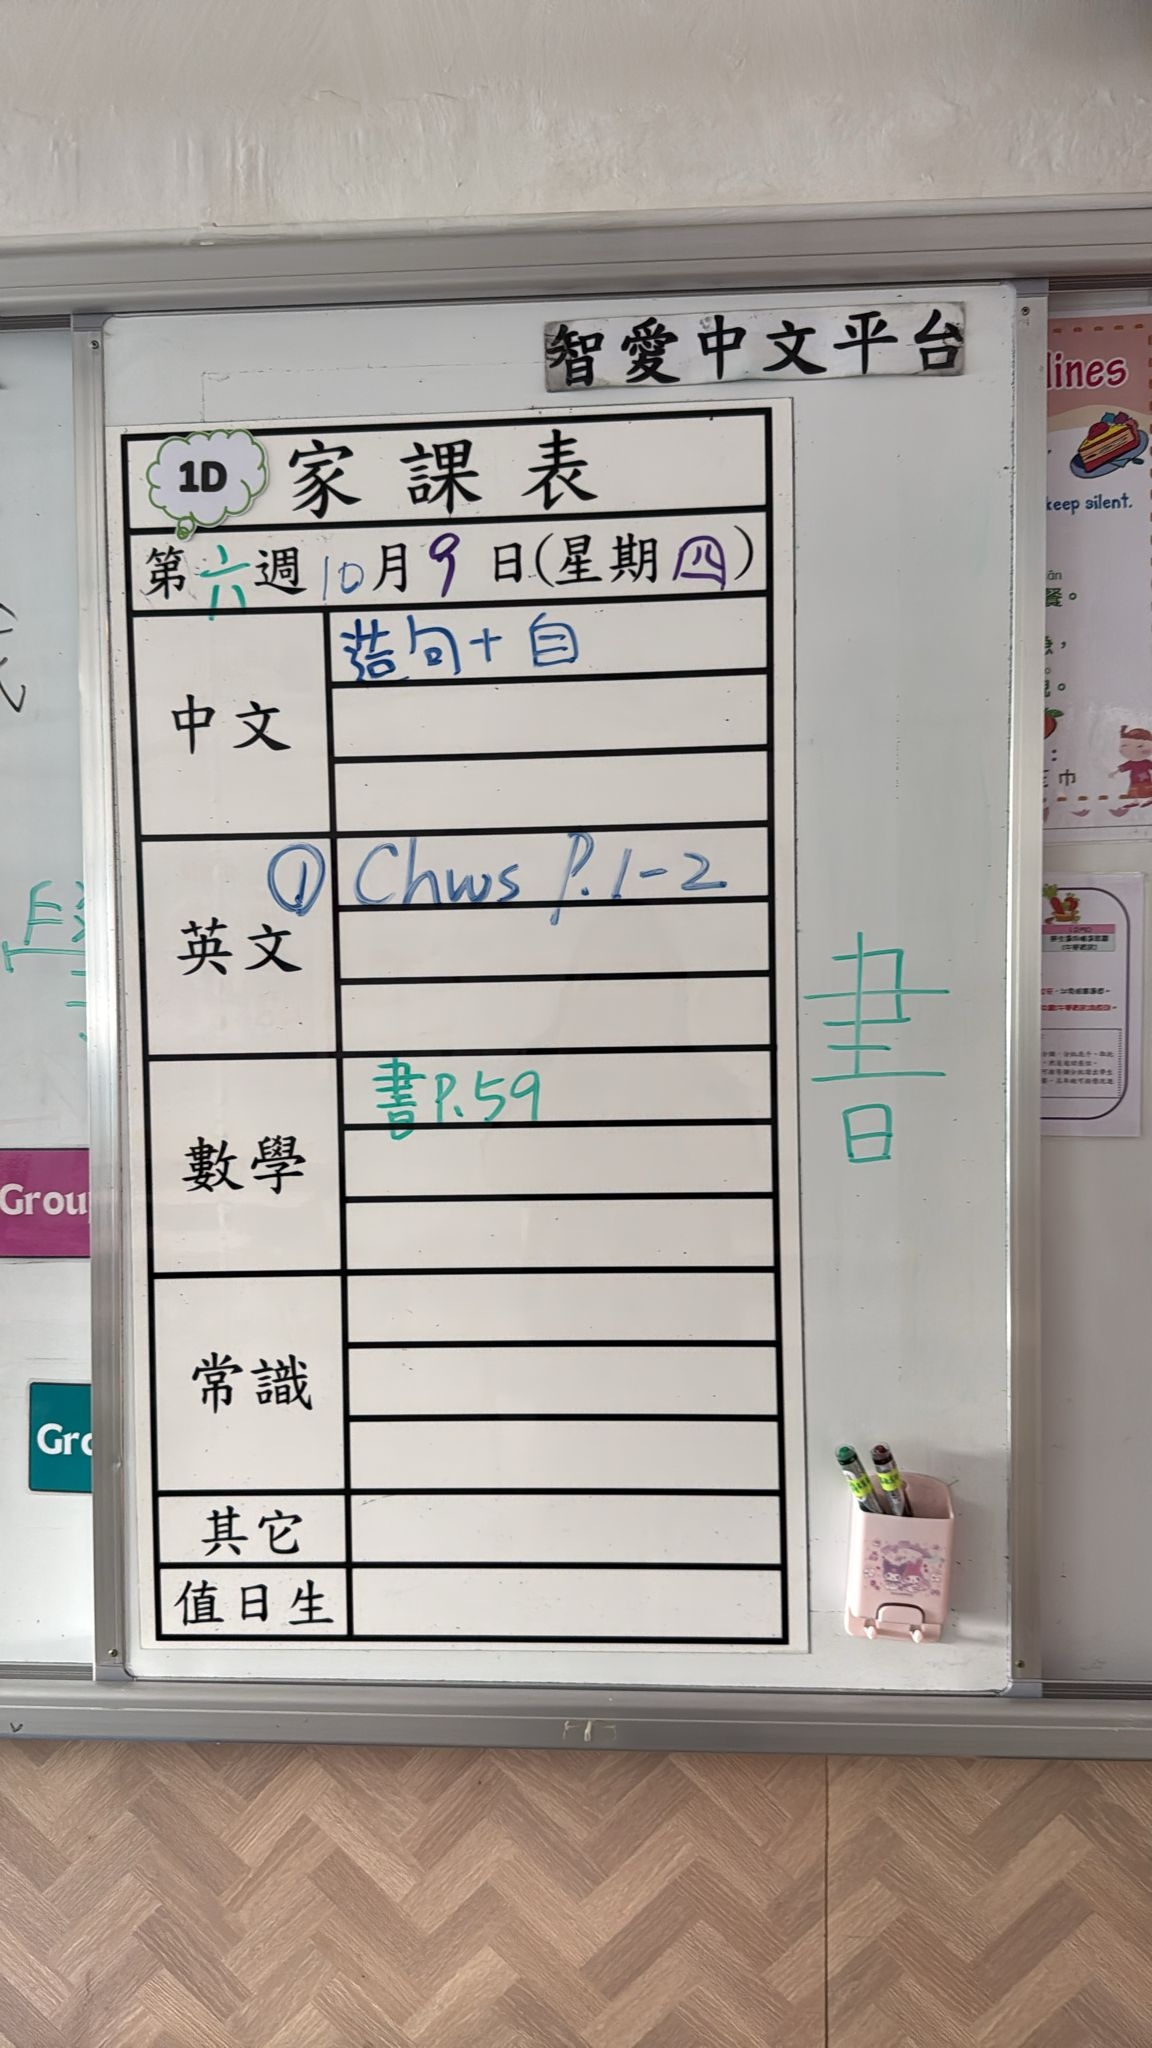 智愛中文平台
1D 家課表
第六週10月9日(星期四)
中文
造句+自
英文
① Chws P.1-2
數學
書P.59
常識
其它
值日生
書
lines
keep silent.
Grou
Gro